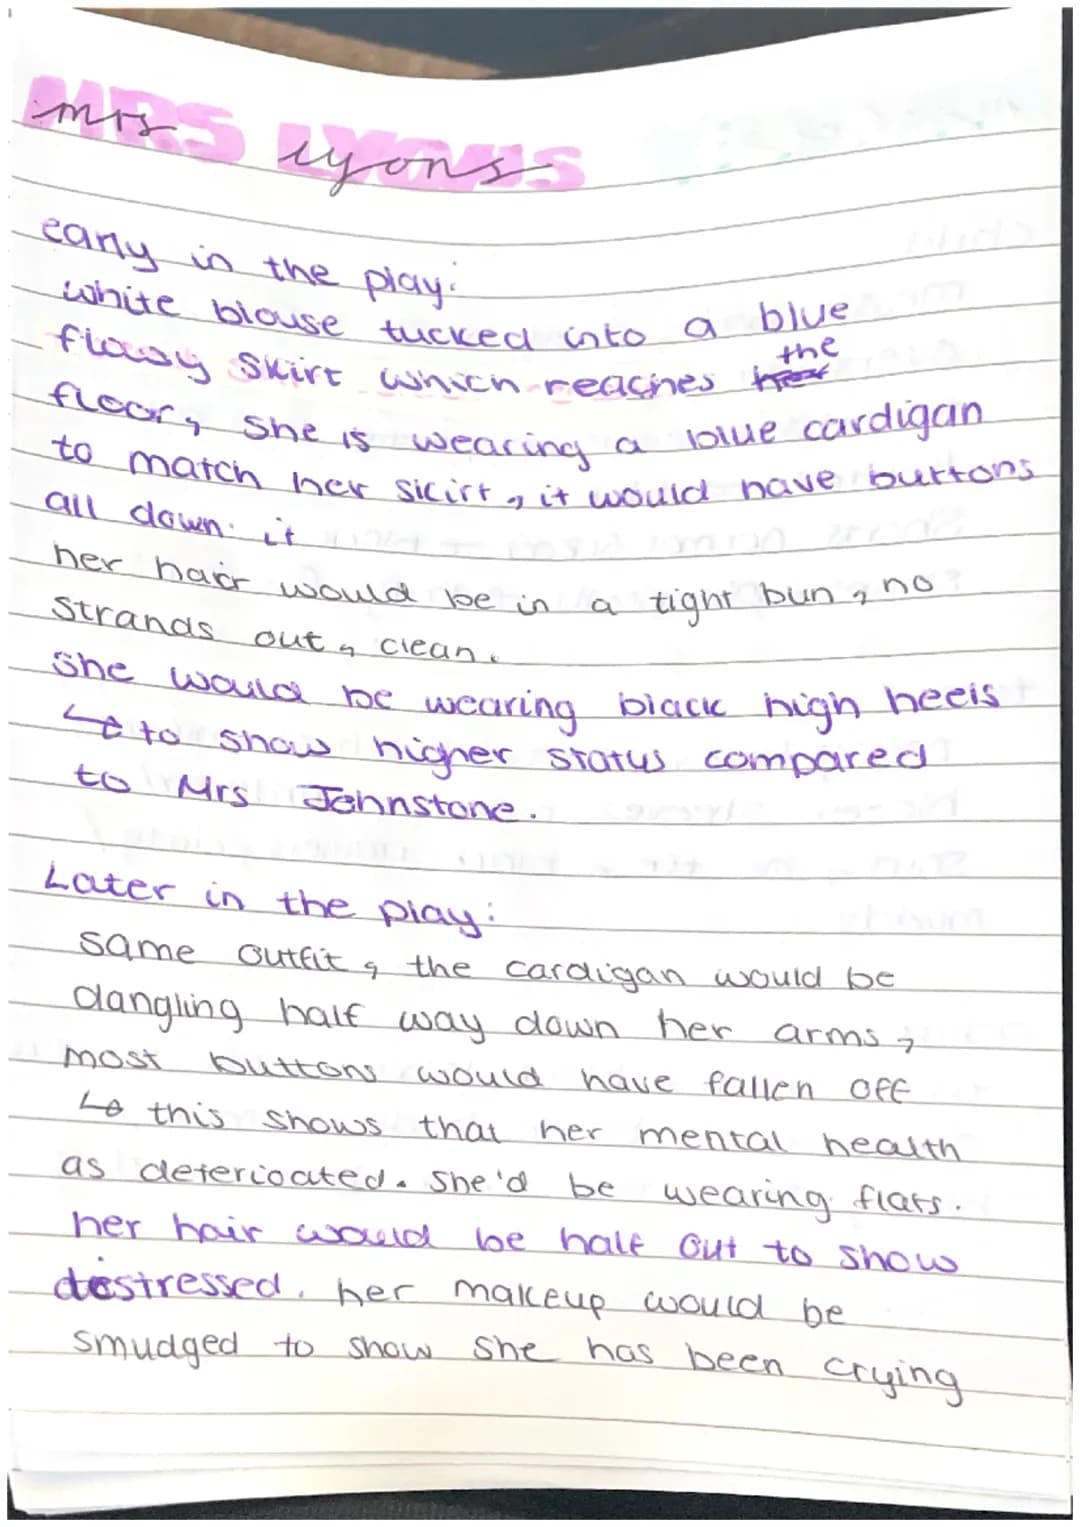 MRS LYONS
mrs lyons
early in the play:
white blouse tucked into a blue
flowy skirt which reaches the
floor, she is wearing a blue cardigan
to match her skirt, it would have buttons
all down it
her hair would be in a tight bun, no
strands out, clean.
She would be wearing black high heels
↳ to show higher status compared
to Mrs Johnstone.
Later in the play:
same outfit, the cardigan would be
dangling half way down her arms,
most buttons would have fallen off
↳ this shows that her mental health
as deterioated. She'd be wearing flats.
her hair would be half out to show
distressed. her makeup would be
smudged to show she has been crying